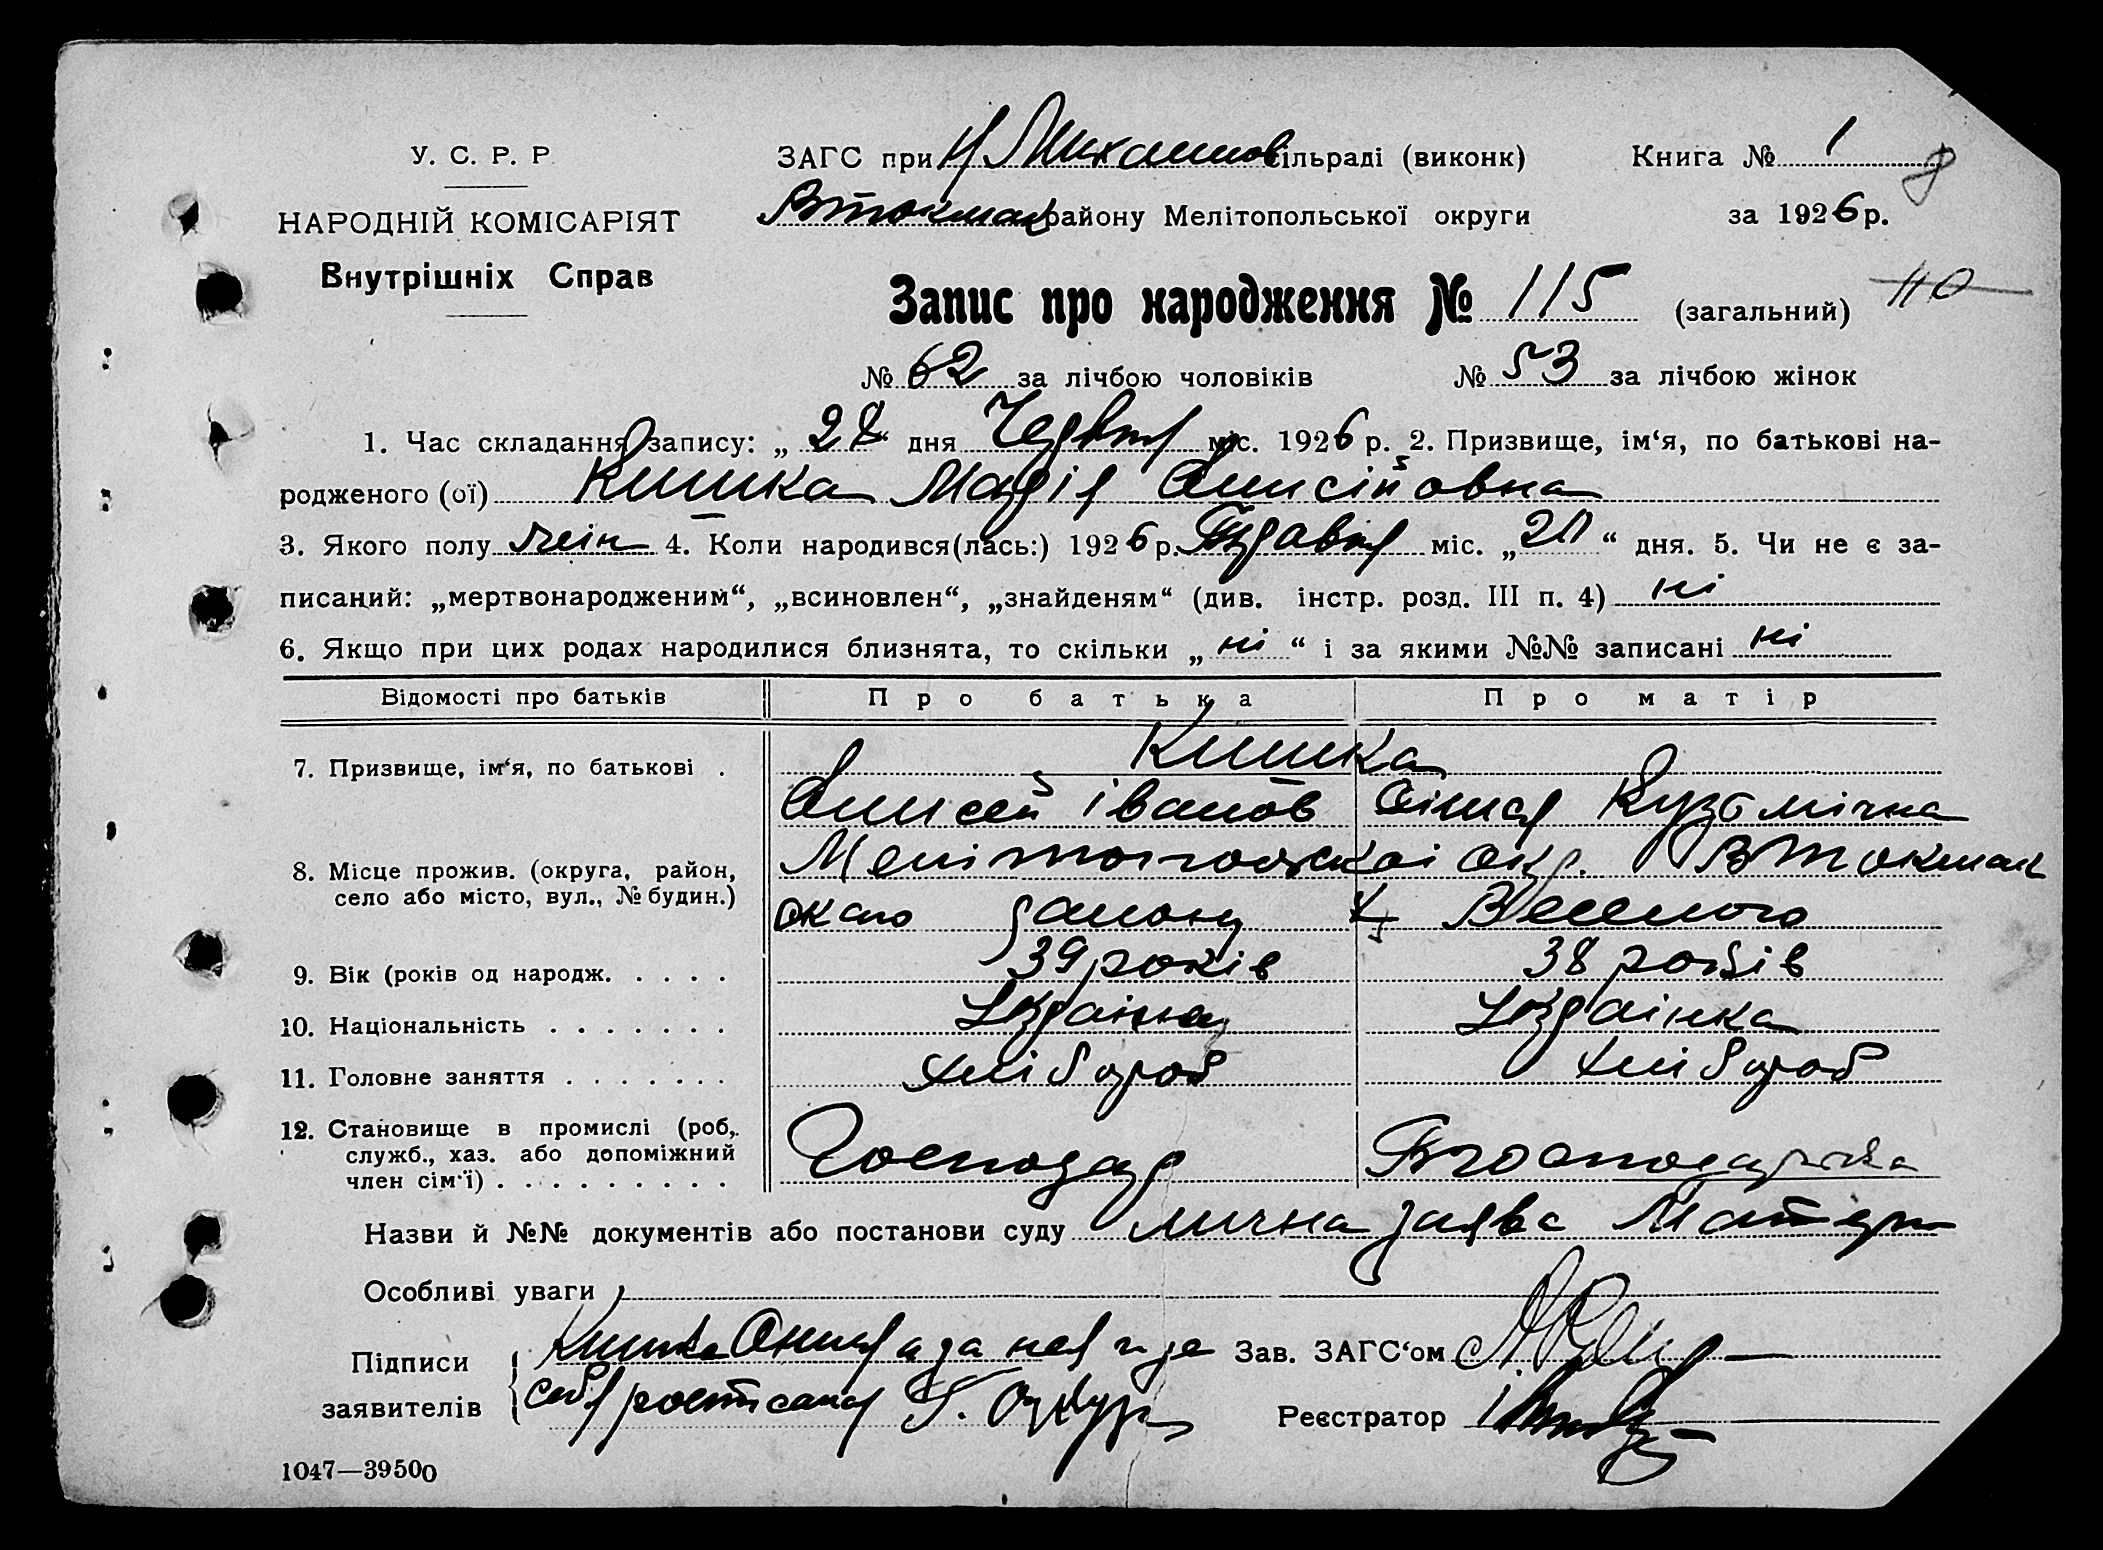 У. С. Р. Р.
НАРОДНІЙ КОМІСАРІЯТ
Внутрішніх Справ
ЗАГС при Н Михайлов сільраді (виконк)
Втокмак району Мелітопольської округи
Книга № 1
8
за 1926 р.
Запис про народження № 115 (загальний) 110
№ 62 за лічбою чоловіків № 53 за лічбою жінок
1. Час складання запису: „ 28 “ дня Червня міс. 1926 р. 2. Призвище, ім‘я, по батькові на-
родженого (ої) Кишка Марія Алисійовна
3. Якого полу жін 4. Коли народився(лась:) 1926 р. міс. „ “ дня. 5. Чи не є за-
писаний: „мертвонародженим“, „всиновлен“, „знайденям“ (див. інстр. розд. III п. 4) ні
6. Якщо при цих родах народилися близнята, то скільки „ ні “ і за якими №№ записані ні
Відомості про батьків Про батька Про матір
7. Призвище, ім‘я, по батькові . Кишка
Алисей Іванов Кузьмічна
8. Місце прожив. (округа, район, село або місто, вул., № будин.) Мелітопольскоі окр. Втокмак
ского району х Веселого
9. Вік (років од народж. . . . . 39 років 38 років
10. Національність . . . . . . . Українец Українка
11. Головне заняття . . . . . . . хлібороб хлібороб
12. Становище в промислі (роб,. служб., хаз. або допоміжний член сім‘ї) . . . . . . . . . Господар Господарка
Назви й №№ документів або постанови суду лична заява Матери
Особливі уваги
Підписи заявителів Кишка а за неї
росписался Г.
Зав. ЗАГС‘ом
Реєстратор
1047—39500